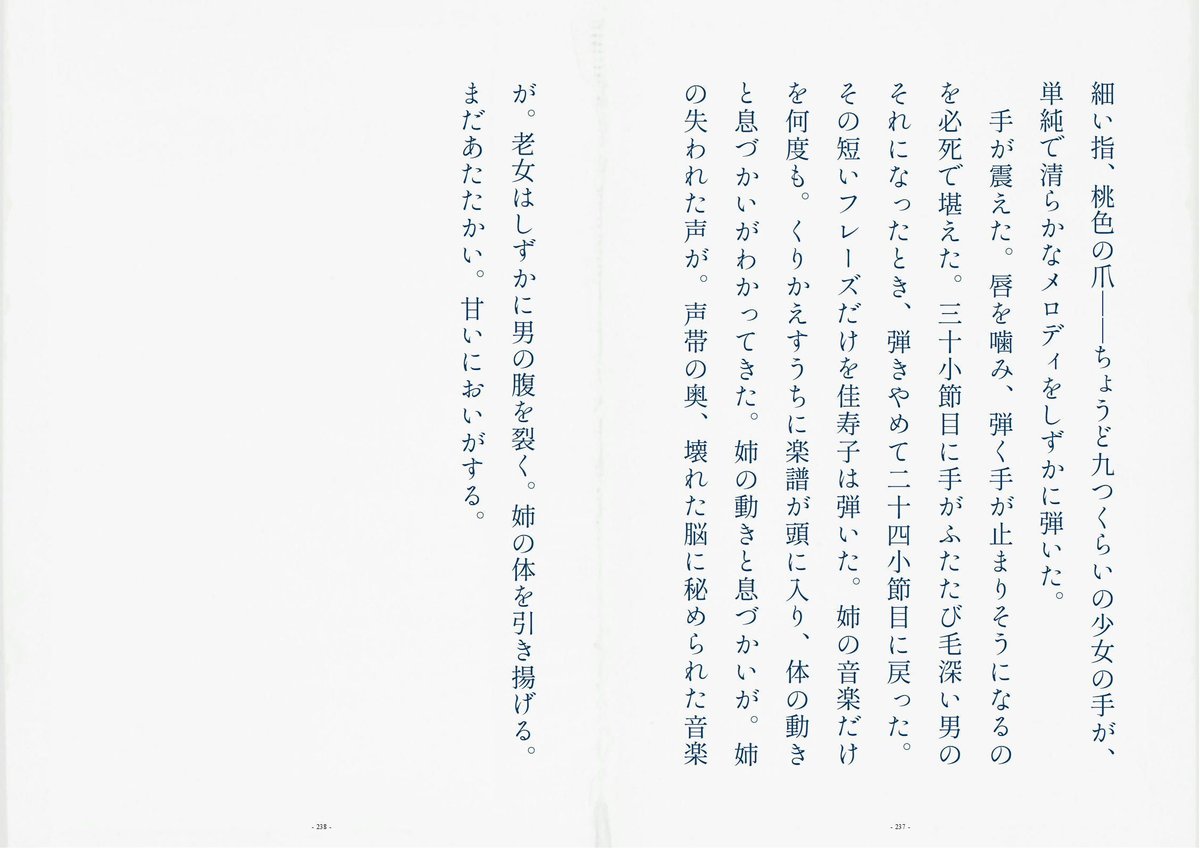 細い指、桃色の爪――ちょうど九つくらいの少女の手が、
単純で清らかなメロディをしずかに弾いた。
　手が震えた。唇を噛み、弾く手が止まりそうになるの
を必死で堪えた。三十小節目に手がふたたび毛深い男の
それになったとき、弾きやめて二十四小節目に戻った。
その短いフレーズだけを佳寿子は弾いた。姉の音楽だけ
を何度も。くりかえすうちに楽譜が頭に入り、体の動き
と息づかいがわかってきた。姉の動きと息づかいが。姉
の失われた声が。声帯の奥、壊れた脳に秘められた音楽
- 237 -
が。老女はしずかに男の腹を裂く。姉の体を引き揚げる。
まだあたたかい。甘いにおいがする。
- 238 -